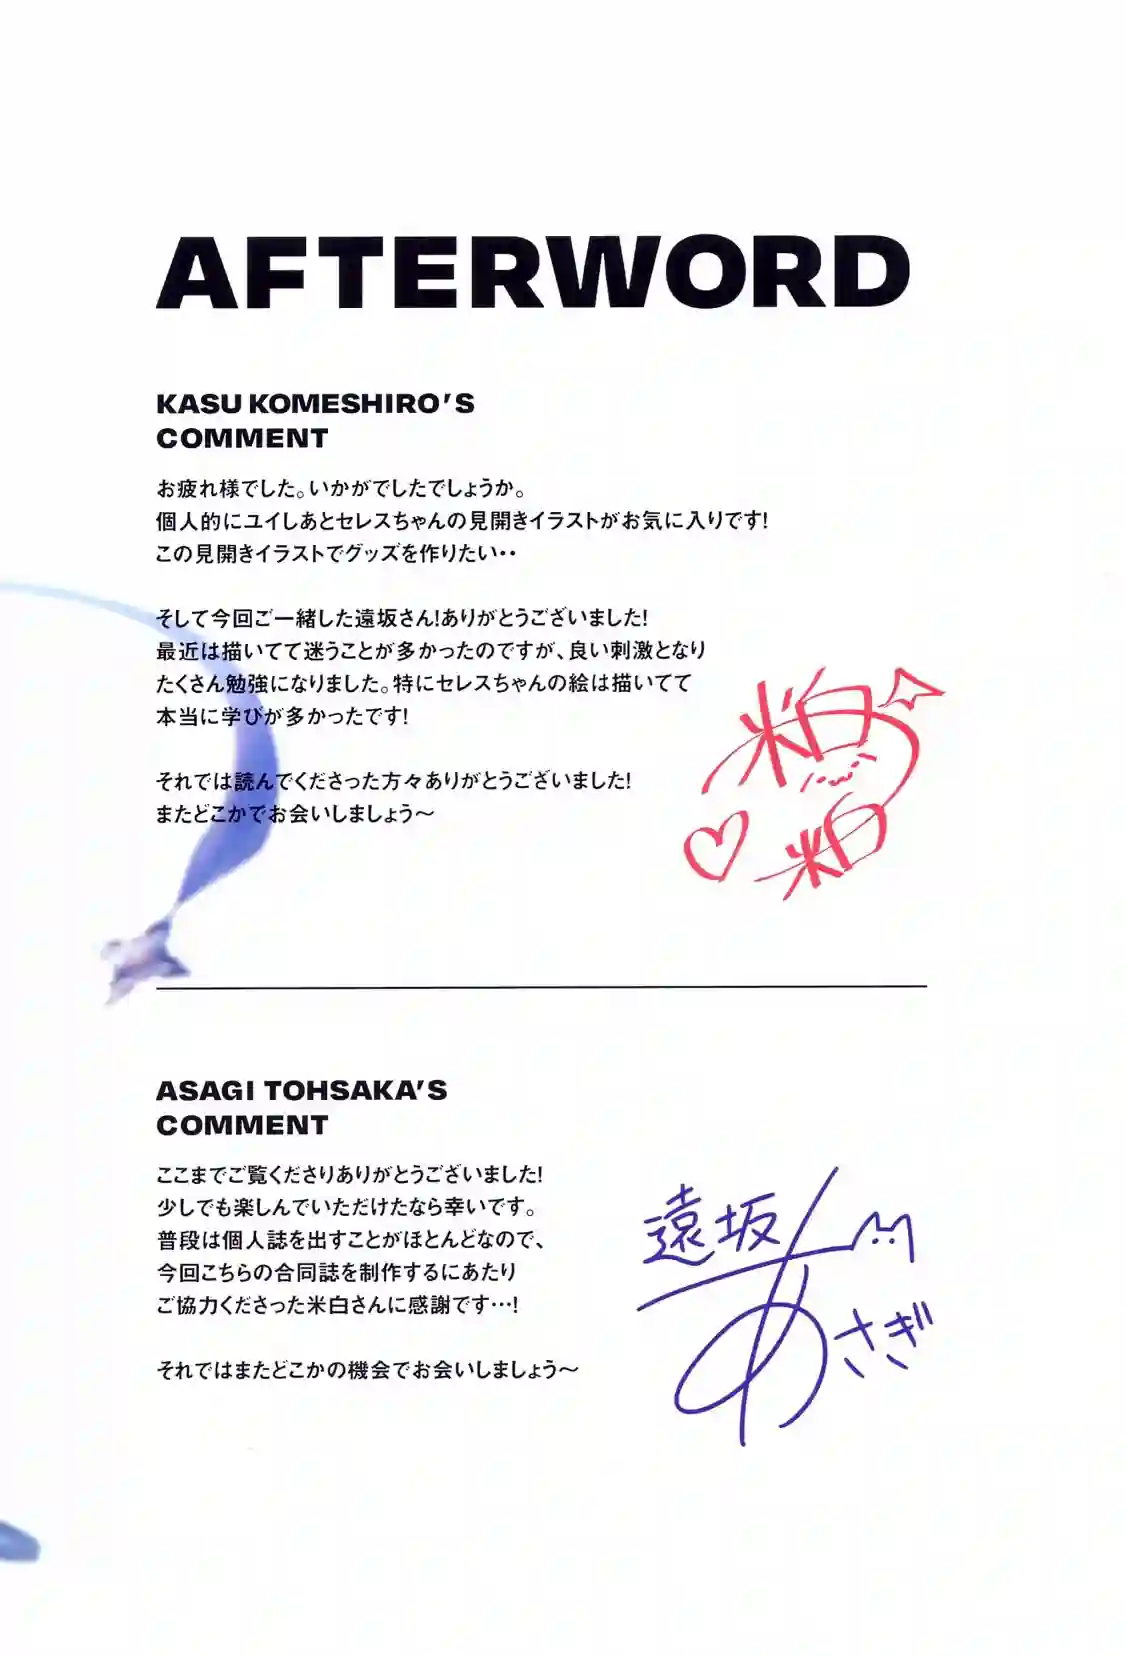 AFTERWORD
KASU KOMESHIRO'S
COMMENT
お疲れ様でした。いかがでしたでしょうか。
個人的にユイしあとセレスちゃんの見開きイラストがお気に入りです!
この見開きイラストでグッズを作りたい・・
そして今回ご一緒した遠坂さん!ありがとうございました!
最近は描いてて迷うことが多かったのですが、良い刺激となり
たくさん勉強になりました。特にセレスちゃんの絵は描いてて
本当に学びが多かったです!
それでは読んでくださった方々ありがとうございました!
またどこかでお会いしましょう〜
米白
粕
ASAGI TOHSAKA'S
COMMENT
ここまでご覧くださりありがとうございました!
少しでも楽しんでいただけたなら幸いです。
普段は個人誌を出すことがほとんどなので、
今回こちらの合同誌を制作するにあたり
ご協力くださった米白さんに感謝です…!
それではまたどこかの機会でお会いしましょう〜
遠坂
あさぎ